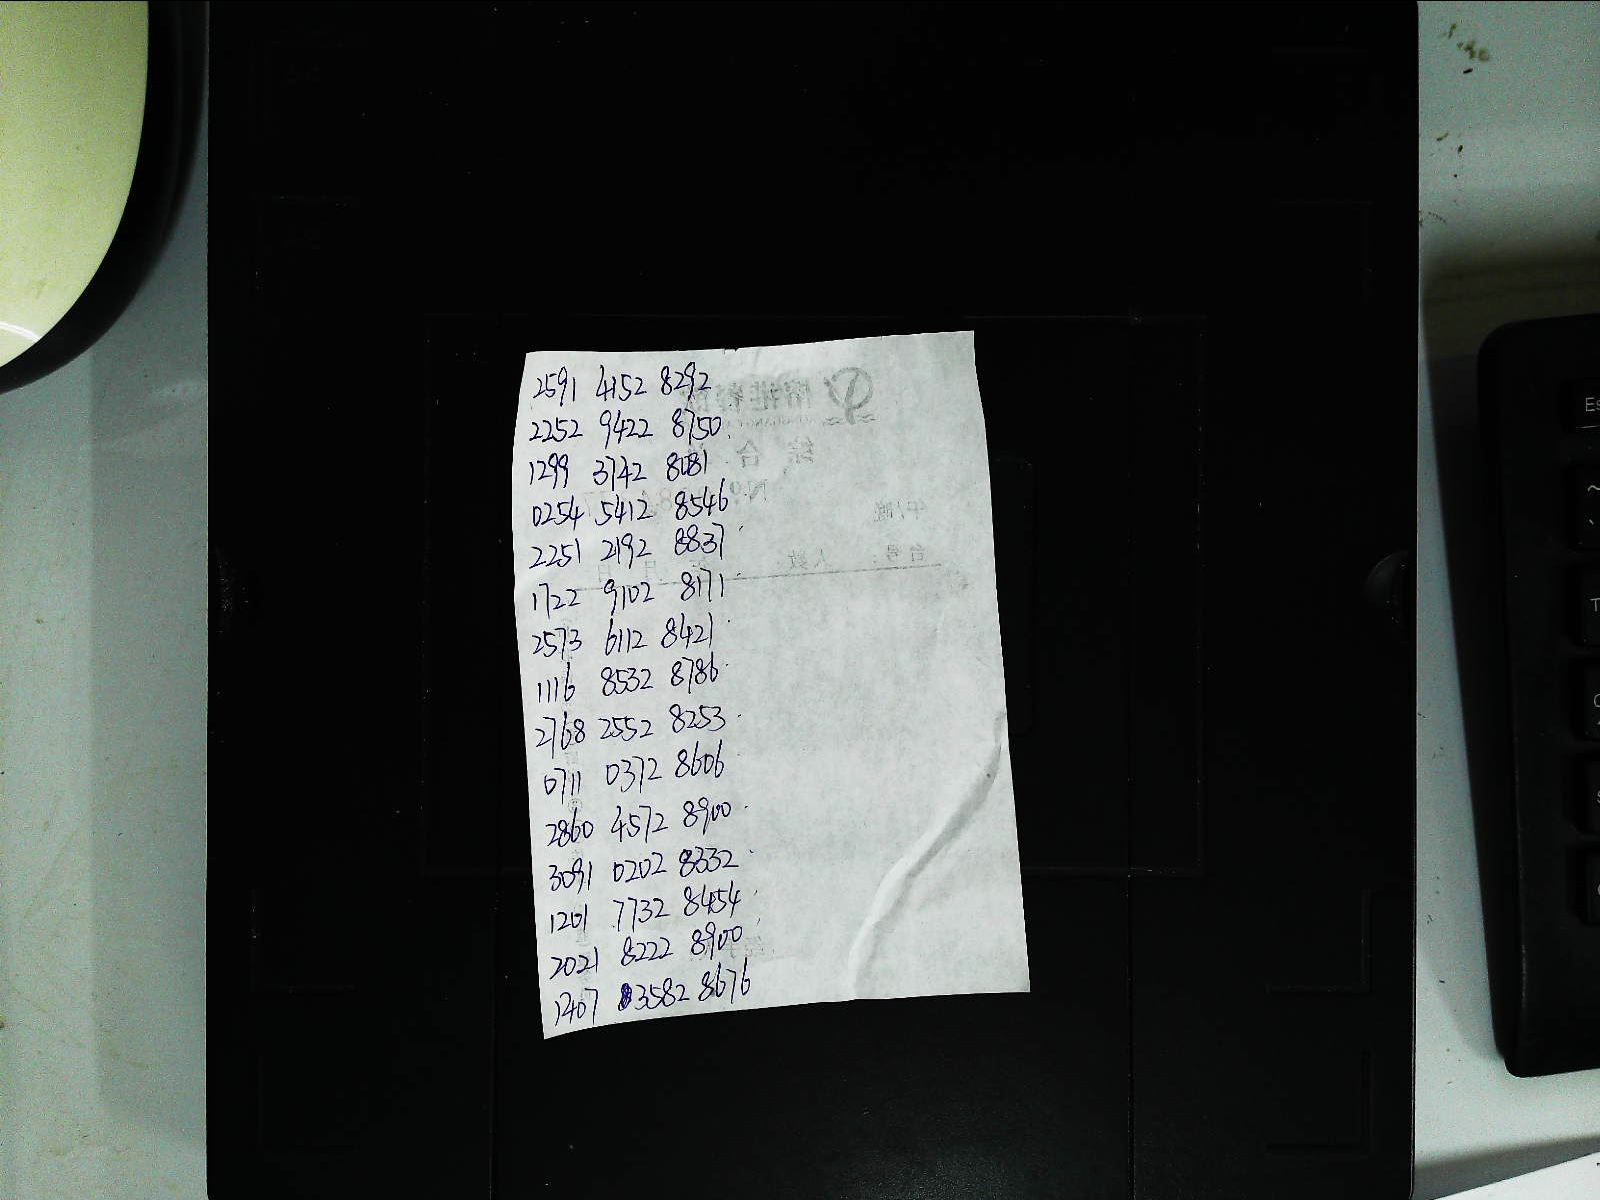 2591 4152 8292
2252 9422 8750
1299 3742 8081
0254 5412 8546
2251 2192 8837
1722 9102 8171
2573 6112 8421
1116 8532 8786
2768 2552 8253
0711 0372 8606
2860 4572 8900
3091 0202 8332
1201 7732 8454
2021 8222 8900
1407 3582 8676